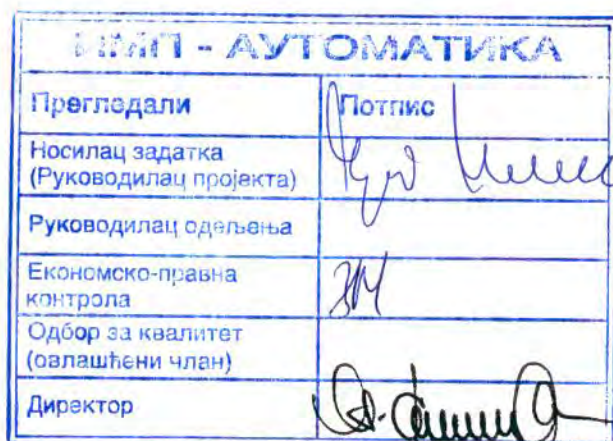 ИМП - АУТОМАТИКА
Прегледали Потпис
Носилац задатка
(Руководилац пројекта)
Руководилац одељења
Економско-правна
контрола
Одбор за квалитет
(овлашћени члан)
Директор